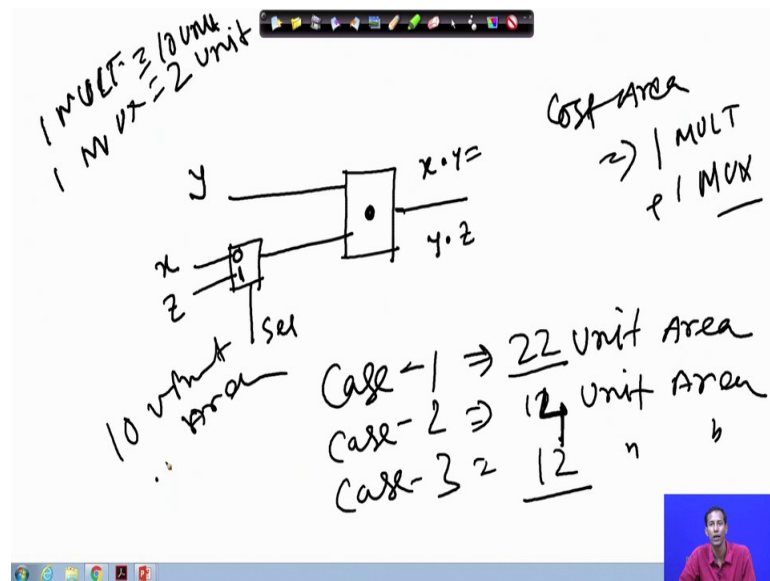 1 MULT = 10 unit
1 MUX = 2 unit
Cost Area
=) 1 MULT
+ 1 MUX
y
x
z
0
1
Sel
x.y=
y.z
Case-1 => 22 Unit Area
Case-2 => 14 Unit Area
Case-3 = 12 "
10
Area